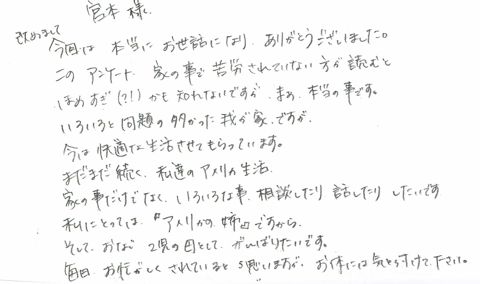 宮本様
改めまして
今回は 本当に お世話になり、ありがとうございました。
このアンケート、家の事で 苦労されていない方が 読むと
ほめすぎ(?!)かも 知れないですが、まぁ、本当の事です。
いろいろと 問題の多かった 我が家、ですが、
今は 快適な 生活させてもらっています。
まだまだ 続く、私達の アメリカ生活。
家の事だけでなく、いろいろな事、相談したり 話したり したいです
私にとっては、『アメリカの 姉』ですから。
そして、おなじ 2児の母として、がんばりたいです。
毎日、お忙がしく されていると 思いますが、お体には 気をつけて下さい。